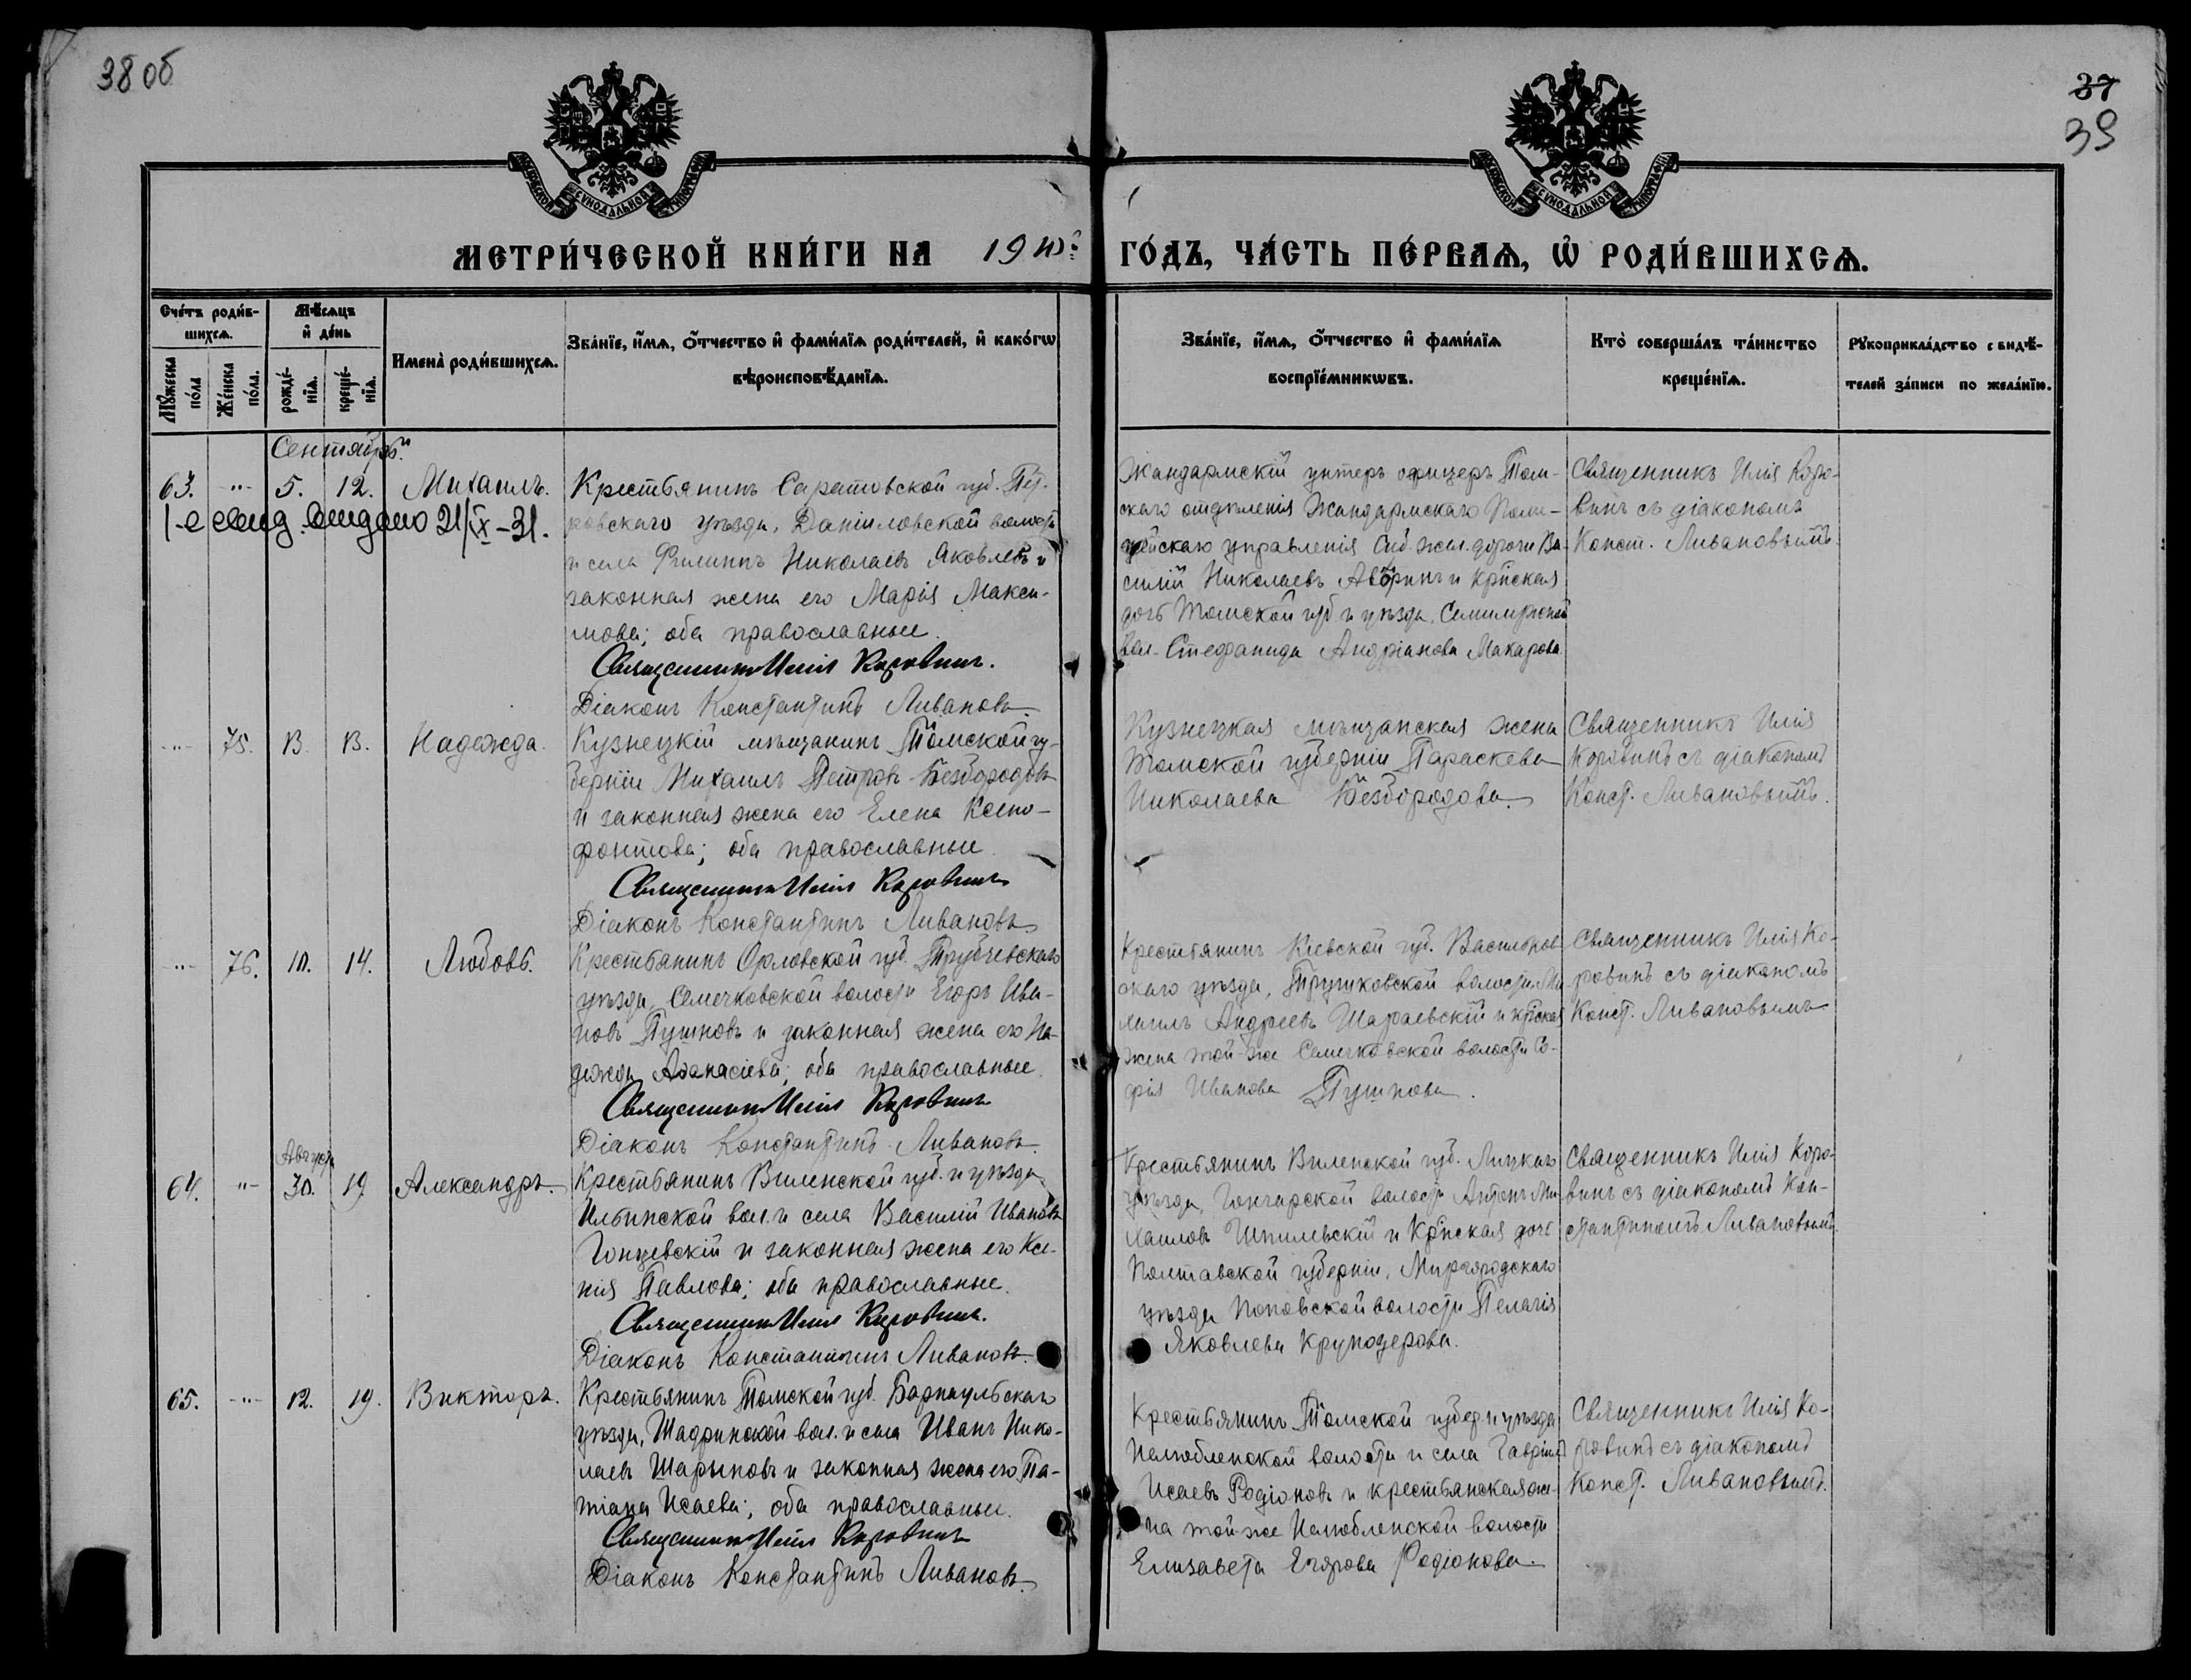 38 об
37
39
МОСКОВСКОЙ СѴНОДАЛЬНОЙ ТИПОГРАФІИ
МОСКОВСКОЙ СѴНОДАЛЬНОЙ ТИПОГРАФІИ
МЕТРИ́ЧЕСКОЙ КНИ́ГИ НА 1910 ГО́ДЪ, ЧА́СТЬ ПЕ́РВАѦ, Ѡ҆ РОДИ́ВШИХСѦ.
Сче́тъ роди́в-
шихсѧ.
Мꙋ́жеска по́ла
Же́нска по́ла.
Мѣ́сѧцъ
и҆ де́нь
рожде́-
нїѧ.
креще́-
нїѧ.
Имена̀ роди́вшихсѧ.
Зва́нїе, и҆́мѧ, ѻ҆́тчество и҆ фами́лїѧ роди́телей, и҆ како́гѡ
вѣроисповѣ́данїѧ.
Зва́нїе, и҆́мѧ, ѻ҆́тчество и҆ фами́лїѧ
воспрїе́мникѡвъ.
Кто̀ соверша́лъ та́инство
креще́нїѧ.
Рꙋкоприкла́дство свидѣ́-
телей за́писи по жела́нїю.
Сентябрь.
63. -"- 5. 12. Михаилъ.
1-е свид. выдано 21/IX-31.
Крестьянинъ Саратовской губ. Пет-
ровскаго уѣзда, Даниловской волости
и села Филиппъ Николаевъ Яковлевъ и
законная жена его Марія Макси-
мова; оба православные.
Священникъ Илія Коровинъ.
Діаконъ Константинъ Ливановъ.
Жандармскій унтеръ офицеръ Том-
скаго отдѣленія Жандармскаго Поли-
цейскаго управленія Сиб. жел. дороги Ва-
силій Николаевъ Аворинъ и кр̃нская
дочь Томской губ. и уѣзда, Семилужной
вол. Стефанида Андріанова Макарова
Священникъ Илія Коро-
винъ съ діакономъ
Конст. Ливановымъ.
-"- 75. 13. 13. Надежда.
Кузнецкій мѣщанинъ Томской гу-
берніи Михаилъ Петровъ Безбородовъ
и законная жена его Елена Ксено-
фонтова; оба православные.
Священникъ Илія Коровинъ
Діаконъ Константинъ Ливановъ
Кузнецкая мѣщанская жена
Томской губерніи Параскева
Николаева Безбородова.
Священникъ Илія
Коровинъ съ діакономъ
Конст. Ливановымъ.
-"- 76. 10. 14. Любовь.
Крестьянинъ Орловской губ. Трубчевскаго
уѣзда, Семечковской волости Егоръ Ива-
новъ Пушновъ и законная жена его На-
дежда Аѳанасіева; оба православные.
Священникъ Илія Коровинъ
Діаконъ Константинъ Ливановъ.
Крестьянинъ Кіевской губ. Васильков-
скаго уѣзда, Трушковской волости Ми-
хаилъ Андреевъ Шараевскій и кр̃нская
жена той-же Семечковской волости Со-
фія Иванова Пушнова.
Священникъ Илія Ко-
ровинъ съ діакономъ
Конст. Ливановымъ
Августъ
64. -"- 30. 19 Александръ.
Крестьянинъ Виленской губ. и уѣзда,
Ильинской вол. и села Василій Ивановъ
Гонцевскій и законная жена его Ксе-
нія Павлова; оба православные.
Священникъ Илія Коровинъ.
Діаконъ Константинъ Ливановъ.
Крестьянинъ Виленской губ. Лидскаго
уѣзда, Гончарской волости Антонъ Ми-
хаиловъ Шпилевскій и Кр̃нская дочь
Полтавской губерніи, Миргородскаго
уѣзда Поповской волости Пелагія
Яковлева Круподерова.
Священникъ Илія Коро-
винъ съ діакономъ Кон-
стантиномъ Ливановымъ.
65. -"- 12. 19. Викторъ.
Крестьянинъ Томской губ. Барнаульскаго
уѣзда, Шадринской вол. и села Иванъ Нико-
лаевъ Шарыповъ и законная жена его Та-
тіана Исаева; оба православные.
Священникъ Илія Коровинъ
Діаконъ Константинъ Ливановъ.
Крестьянинъ Томской губер. и уѣзда
Нелюбинской волости и села Гавріилъ
Исаевъ Родіоновъ и крестьянская же-
на той-же Нелюбинской волости
Елизавета Егорова Родіонова.
Священникъ Илія Ко-
ровинъ съ діакономъ
Конст. Ливановымъ.